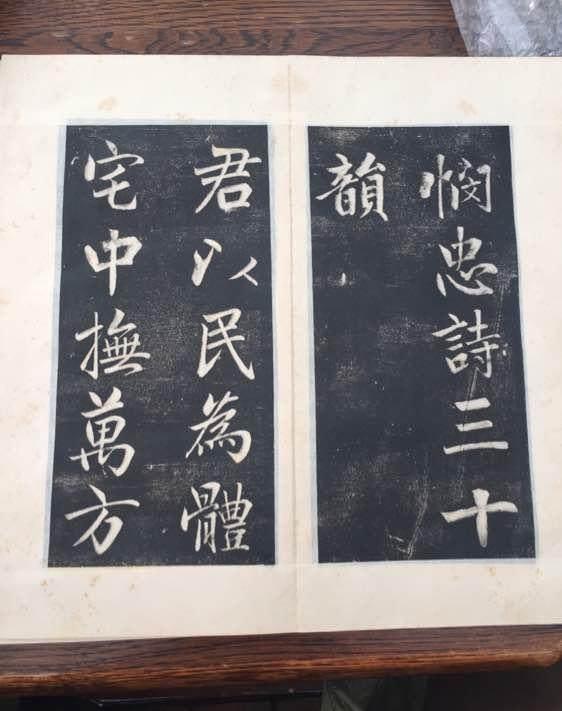 憫忠詩三十
韻
君以民為體
宅中撫萬方